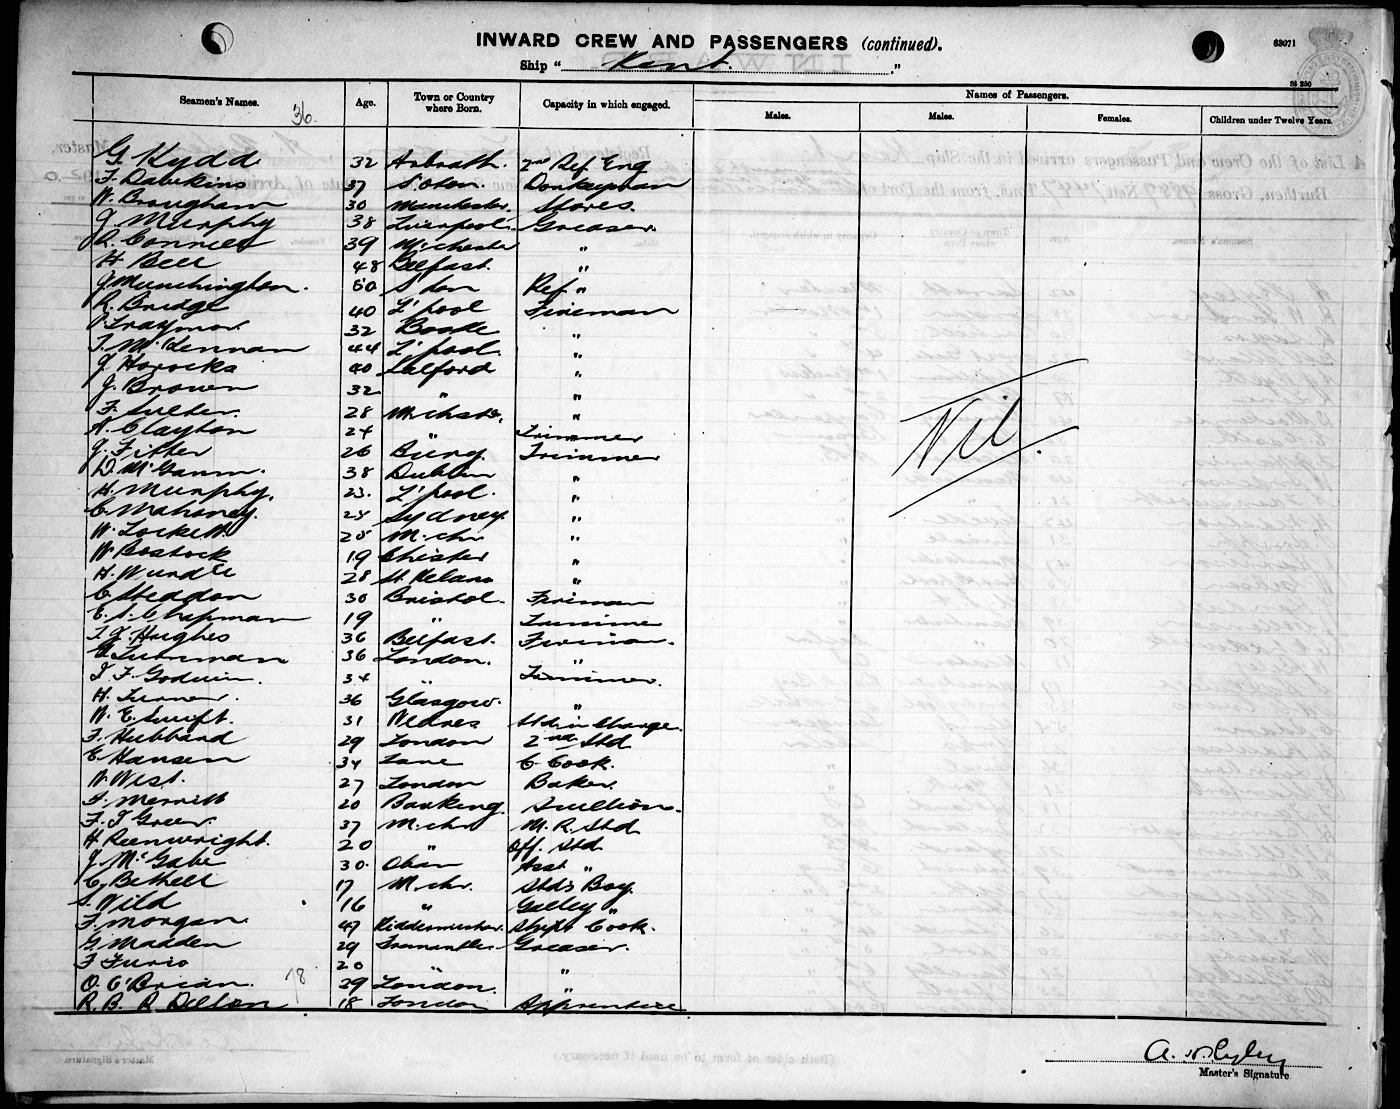 INWARD CREW AND PASSENGERS (continued).
63071
Ship " Kent. "
St 250
Seamen's Names. Age. Town or Country where Born. Capacity in which engaged. Names of Passengers.
Males. Males. Females. Children under Twelve Years.
36.
G. Kydd 32 Arbroath. 2nd Ref Eng
F. Dawkins 37 S'oton. Donkeyman
W. Brougham 30 Manchester. Stores.
J. Murphy 38 Liverpool. Greaser.
R. Connell 39 M'chester "
H Bell 48 Belfast. "
J. Munchington. 50 S'ton Ref "
R. Bridge 40 L'pool Fireman
32 Bootle "
T. McLennan 44 L'pool. "
J. Horocks 40 Salford "
J. Brown 32 " "
F. 28 M'chester, "
A. Clayton 24 " Trimmer
J. Fither 26 Bury. Trimmer
D. McGann. 38 Dublin "
H. Murphy. 23. L'pool. "
C. Mahoney. 25 Sydney "
W. Lockett. 25 M.chr "
W Bostock 19 Chester "
H. 28 St Helans "
C. Sheddon 30 Bristol. Fireman
E. A. Chapman 19 " Trimmer
T. J. Hughes 36 Belfast. Fireman.
36 London. "
T. F. Godwin. 34 " Trimmer.
H. Turner. 36 Glasgow. "
W. E. Swift. 31 Widnes Std in Charge.
F. Hubbard 29 London 2nd Std
E. Hansen 34 C Cook.
W. West. 27 London Baker.
F. Merritt 20 Barking. Scullion.
F. T Green. 37 M.chr M. R. Std
H Reenwright. 20 " Off. Std
J. McGabe 30. Oban Asst "
C. Bethell 17 M.chr. Std's Boy.
S. Wild 16 " Galley "
F. Morgan. 47 Kidderminster. Ship's Cook.
G. Madden 29 Fremantle. Greaser.
F Furio 20 " "
O. O'Brian. 29 London. "
R. B. R. Dillon 18 London Apprentice
78
Nil.
A. W. Cyley
Master's Signature